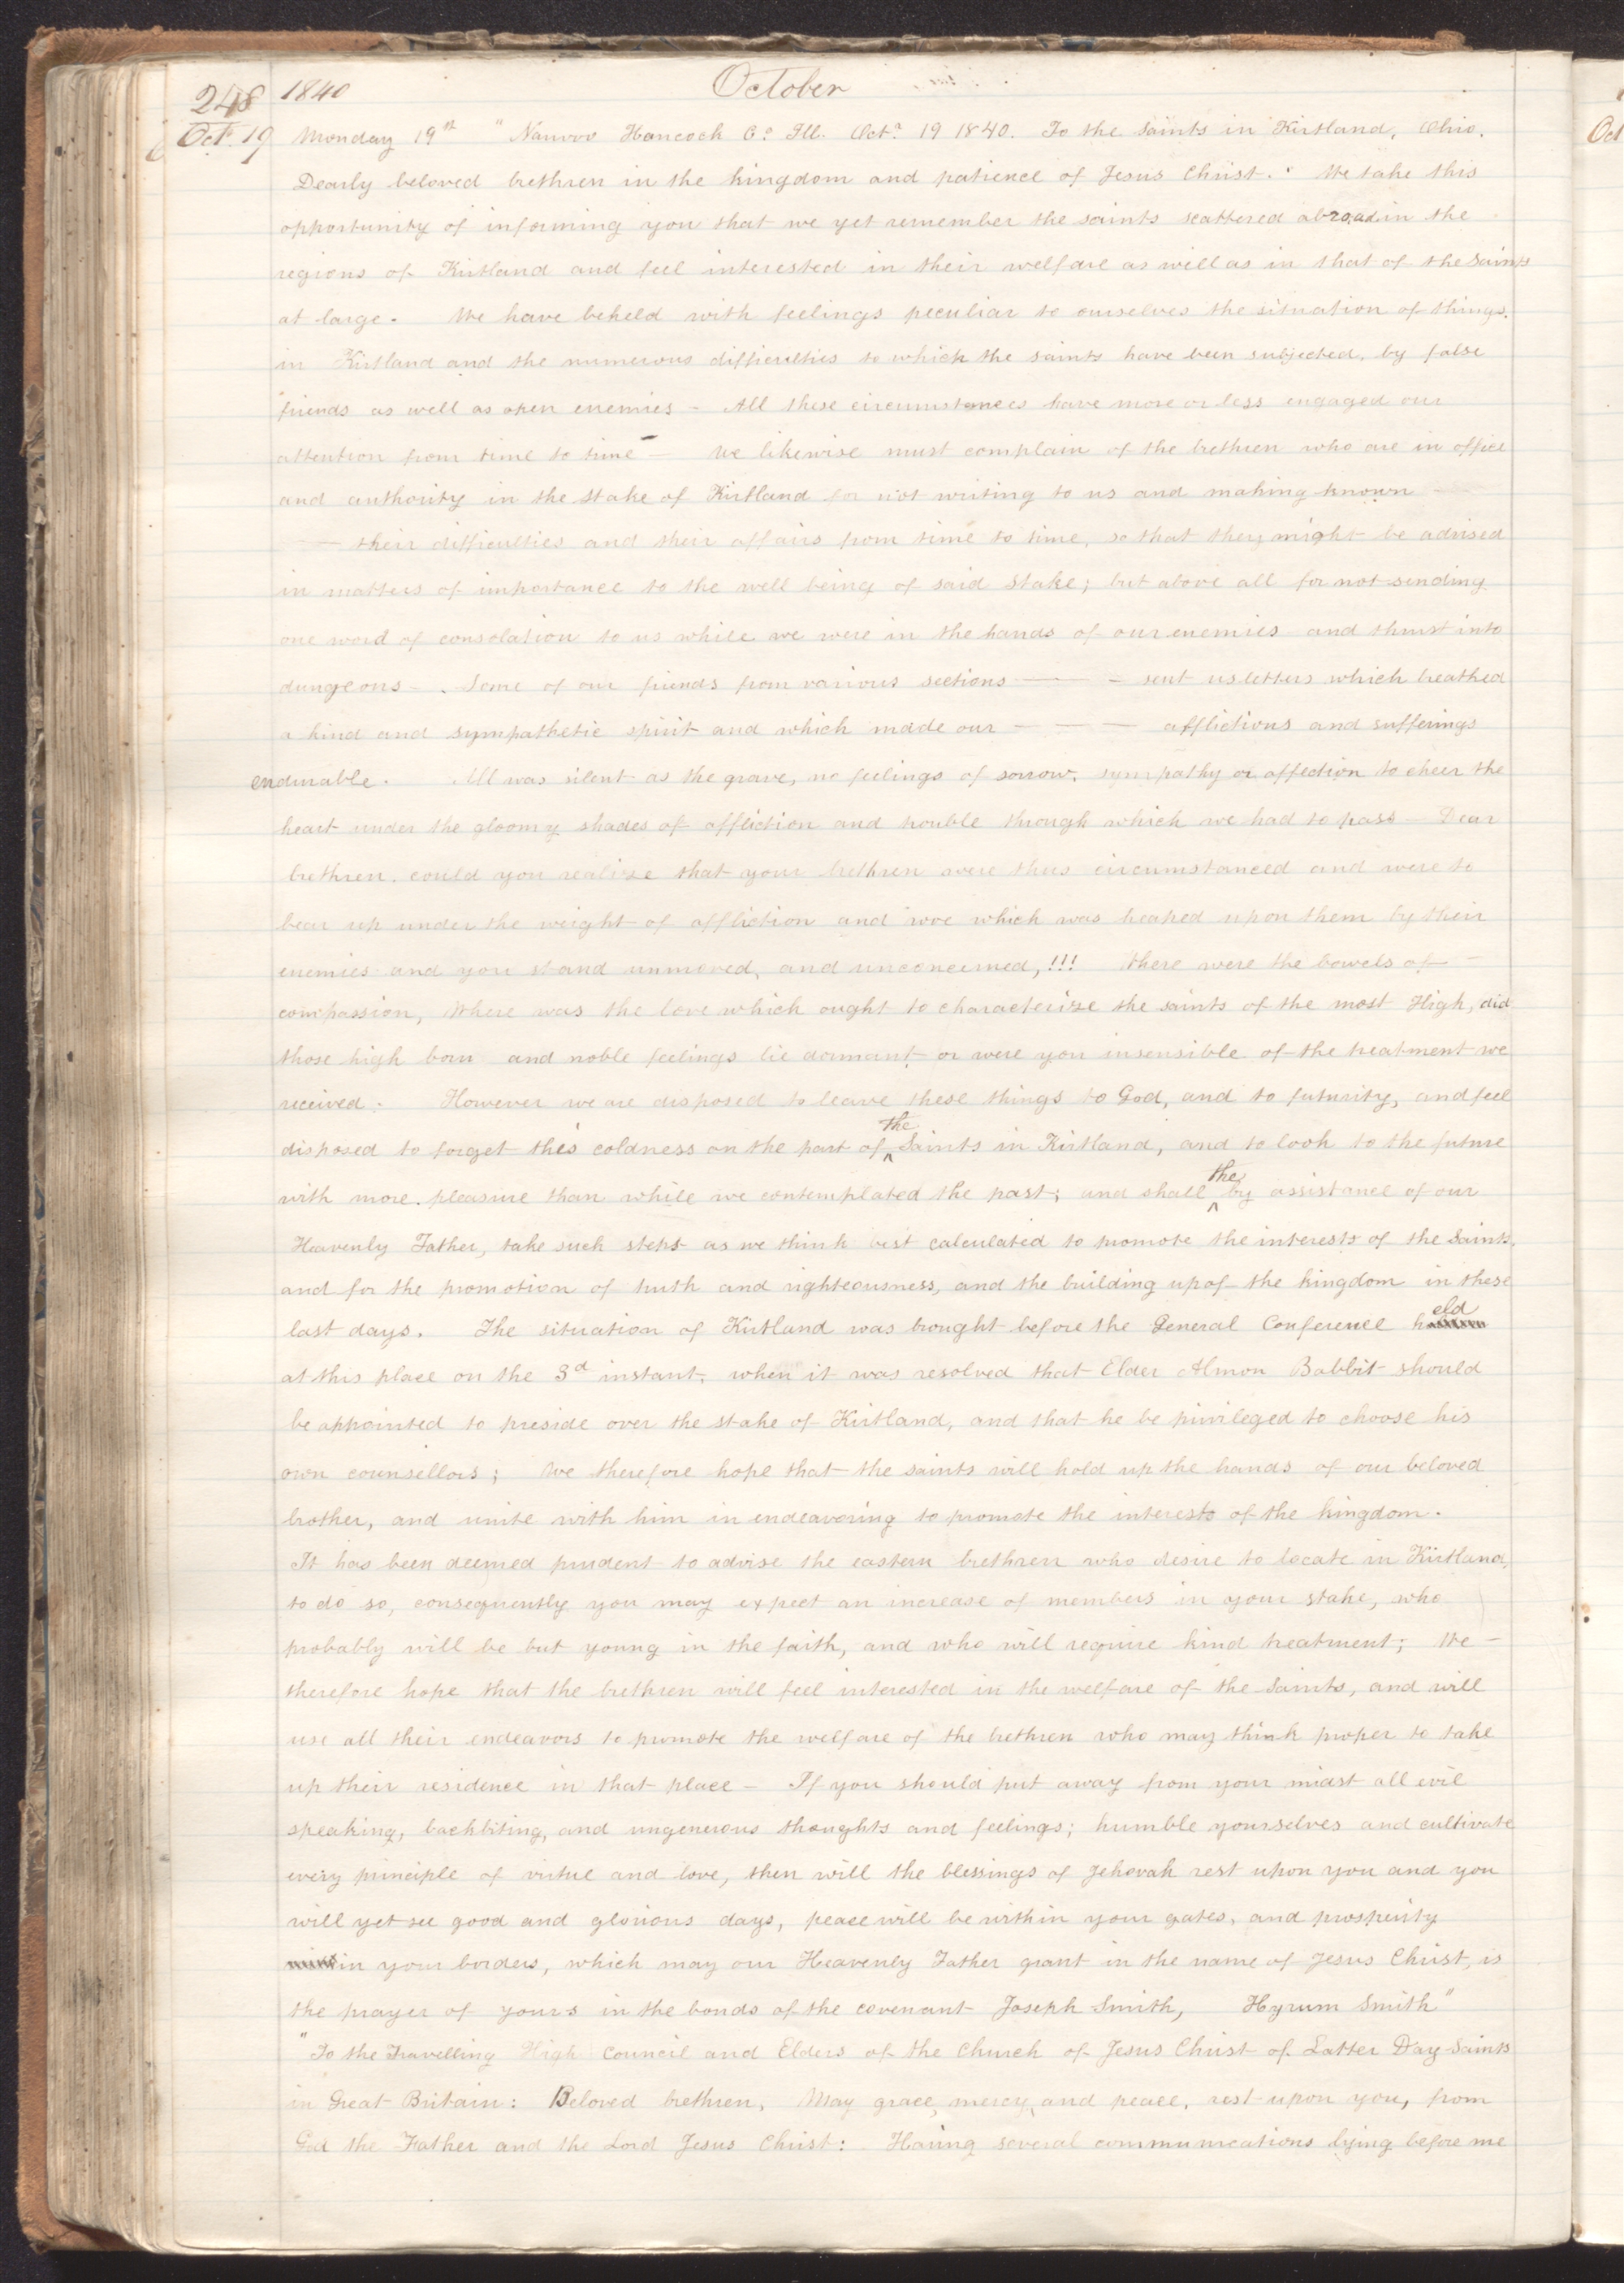 248 1840 October
Oct. 19 Monday 19th "Nauvoo Hancock Co. Ill. Octr. 19 1840. To the Saints in Kirtland, Ohio.
Dearly beloved brethren in the kingdom and patience of Jesus Christ. We take this
opportunity of informing you that we yet remember the saints scattered abroad in the
regions of Kirtland and feel interested in their welfare as well as in that of the Saints
at large. We have beheld with feelings peculiar to ourselves the situation of things
in Kirtland and the numerous difficulties to which the saints have been subjected, by false
friends as well as open enemies - All these circumstances have more or less engaged our
attention from time to time — We likewise must complain of the brethren who are in office
and authority in the stake of Kirtland for not writing to us and making known —
— their difficulties and their affairs from time to time, so that they might be advised
in matters of importance to the well being of said Stake; but above all for not sending
one word of consolation to us while we were in the hands of our enemies and thrust into
dungeons - Some of our friends from various sections — — sent us letters which breathed
a kind and sympathetic spirit and which made our — — — afflictions and sufferings
endurable. All was silent as the grave, no feelings of sorrow, sympathy or affection to cheer the
heart under the gloomy shades of affliction and trouble through which we had to pass — Dear
brethren could you realize that your brethren were thus circumstanced and were to
bear up under the weight of affliction and woe which was heaped upon them by their
enemies and you stand unmoved, and unconcerned,!!! Where were the bowels of —
compassion, Where was the love which ought to characterize the saints of the most High, did
those high born and noble feelings lie dormant or were you insensible of the treatment we
received. However we are disposed to leave these things to God, and to futurity, and feel
disposed to forget this coldness on the part of ^the Saints in Kirtland, and to look to the future
with more pleasure than while we contemplated the past; and shall ^the by assistance of our
Heavenly Father, take such steps as we think best calculated to promote the interests of the Saints,
and for the promotion of truth and righteousness, and the building up of the kingdom in these
last days. The situation of Kirtland was brought before the General Conference held
at this place on the 3d instant, when it was resolved that Elder Almon Babbit should
be appointed to preside over the stake of Kirtland, and that he be privileged to choose his
own counsellors; We therefore hope that the saints will hold up the hands of our beloved
brother, and unite with him in endeavoring to promote the interests of the kingdom.
It has been deemed prudent to advise the eastern brethren who desire to locate in Kirtland,
to do so, consequently you may expect an increase of members in your stake, who
probably will be but young in the faith, and who will require kind treatment; We —
therefore hope that the brethren will feel interested in the welfare of the Saints, and will
use all their endeavors to promote the welfare of the brethren who may think proper to take
up their residence in that place — If you should put away from your midst all evil
speaking, backbiting, and ungenerous thoughts and feelings; humble yourselves and cultivate
every principle of virtue and love, then will the blessings of Jehovah rest upon you and you
will yet see good and glorious days, peace will be within your gates, and prosperity
in your borders, which may our Heavenly Father grant in the name of Jesus Christ, is
the prayer of yours in the bonds of the covenant Joseph Smith, Hyrum Smith"
"To the Travelling High Council and Elders of the Church of Jesus Christ of Latter Day Saints
in Great Britain: Beloved brethren, May grace, mercy, and peace, rest upon you, from
God the Father and the Lord Jesus Christ: Having several communications lying before me
Oct